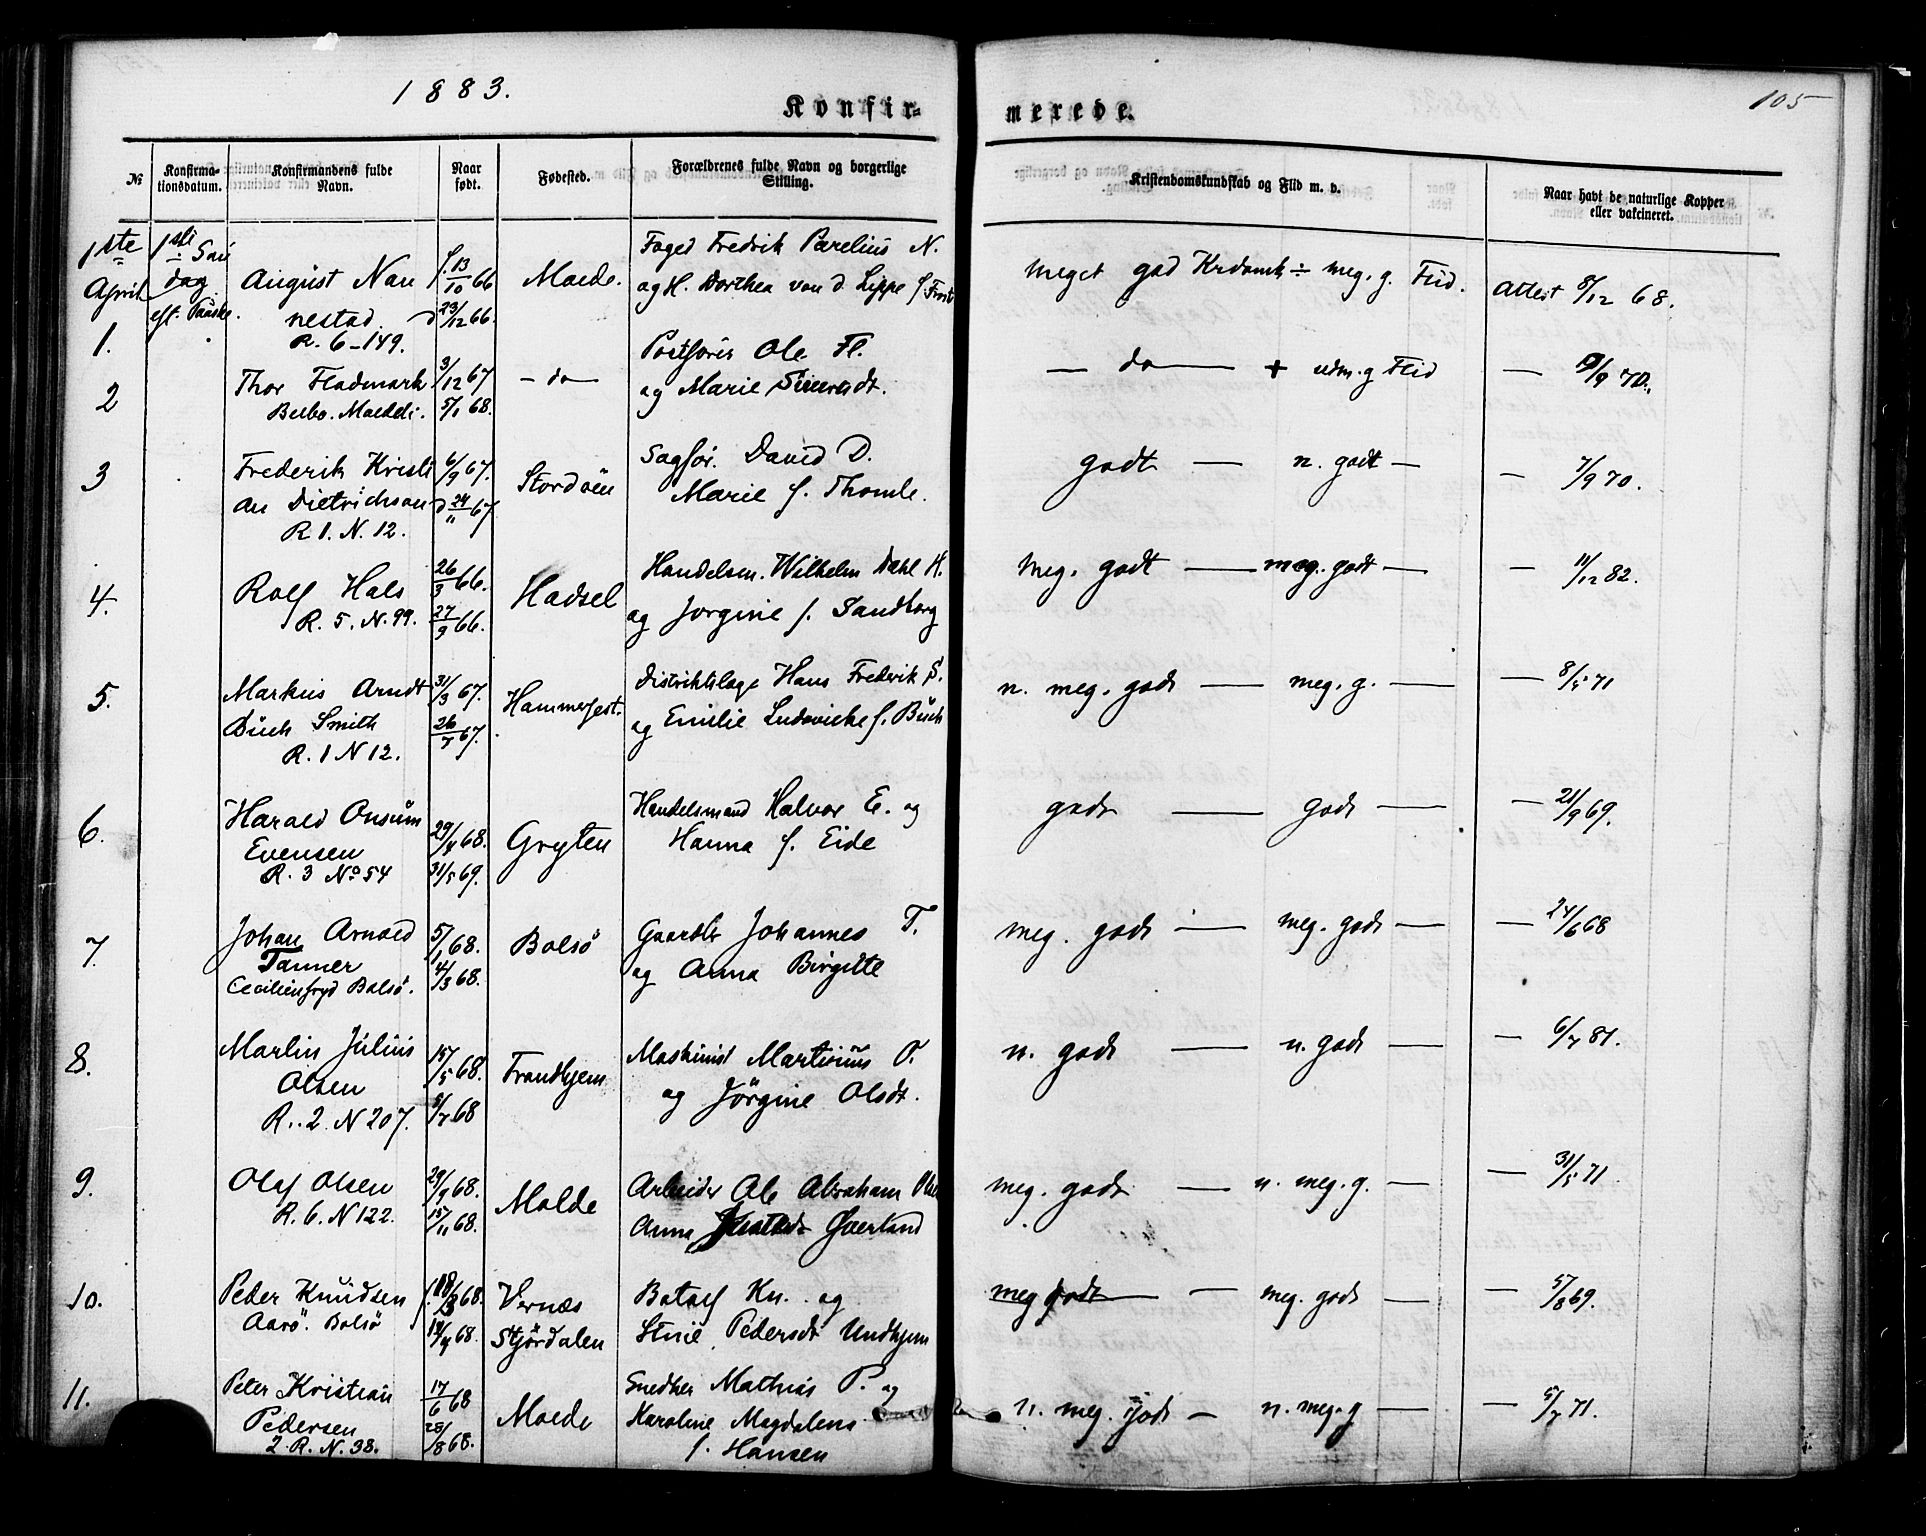 1883.
Konfir-
merede.
105
№
Konfirma-
tionsdatum.
Konfirmandens fulde
Navn.
Naar
født.
Fødested.
Forældrenes fulde Navn og borgerlige
Stilling.
Kristendomskundskab og Flid m. v.
Naar havt de naturlige Kopper
eller vaccineret.
1ste
April
1.
dag
eft. Paaske.
August Nan
nestad
R. 6-149.
f. 13/10 66
d 23/12 66.
Molde.
Foged Fredrik Parelius N.
og H. Dorthea von d. Lippe f.
meget god Krdomk ÷ meg. g. Flid.
Attest 8/12 68.
2
Thor Fladmark
3/12 67
5/1 68.
- do -
Ole Fl.
og Marie
- do - + udm. g Flid
- 9 70.
3
Frederik Kristi
an Dietrichson
R 1. N. 12.
6/9 67.
d 24/11 67
Stordöen
Sagfør. David D.
Marie f. Thomle.
godt - n. godt -
- 7/9 70.
4.
Rolf Hals
R. 5. N. 99.
26/3 66.
27/9 66.
Hadsel
Handelsm. Wilhelm Dahl H.
og Jorgine f. Sandborg
Meg. godt - meg. godt -
- 11/12 82.
5.
Markus Arndt
Büch Smith
R. 1 N 12.
31/3 67.
26/7 67.
Hammerfest.
Distriktslæge Hans Frederik S.
og Emilie Ludovicke f. Büch
n. meg. godt - meg. g. -
- 8/5 71
6.
Harald Onsum
Evensen
R. 3 No 54
29/4 68.
31/5 69.
Gryten
Handelsmand Halvor E. og
Hanna f. Eide
godt - godt -
- 21/9 69.
7.
Johan Arnold
Tanner
Cecilienfryd Bolsö.
5/1 68.
4/3 68.
Bolsö
Gaardbr Johannes T.
og Anna Birgitte
meg. godt - meg. godt -
- 24/6 68
8.
Martin Julius
Olsen
R.. 2. N 207.
15/5 68.
5/7 68
Trondhjem
Maskinist Martinius O.
og Jörgine Olsdt.
n. godt - n. godt -
- 6/7 81.
9.
Olaf Olsen
R. 6. N 122.
29/9 68.
15/11 68.
Molde
Arbeider Ole Abraham
Anna Överland
meg. godt - n. meg. g. -
- 31/5 71
10.
Peder Knudsen
Aarö. Bolsö
f. 18/3 68.
19/4 68.
Vernæs
Stjördalen
Botolf Kn. og
Stine Pedersdt Undhjem
meg godt - meg. godt -
- 5/8 69.
11.
Peter Kristian
Pedersen
2 R. N. 38.
17/6 68
28/8 68.
Molde
Snedker Mathias P. og
Karoline Magdalena
f. Hansen
n. meg. godt - n. meg. g -
- 5/7 71.